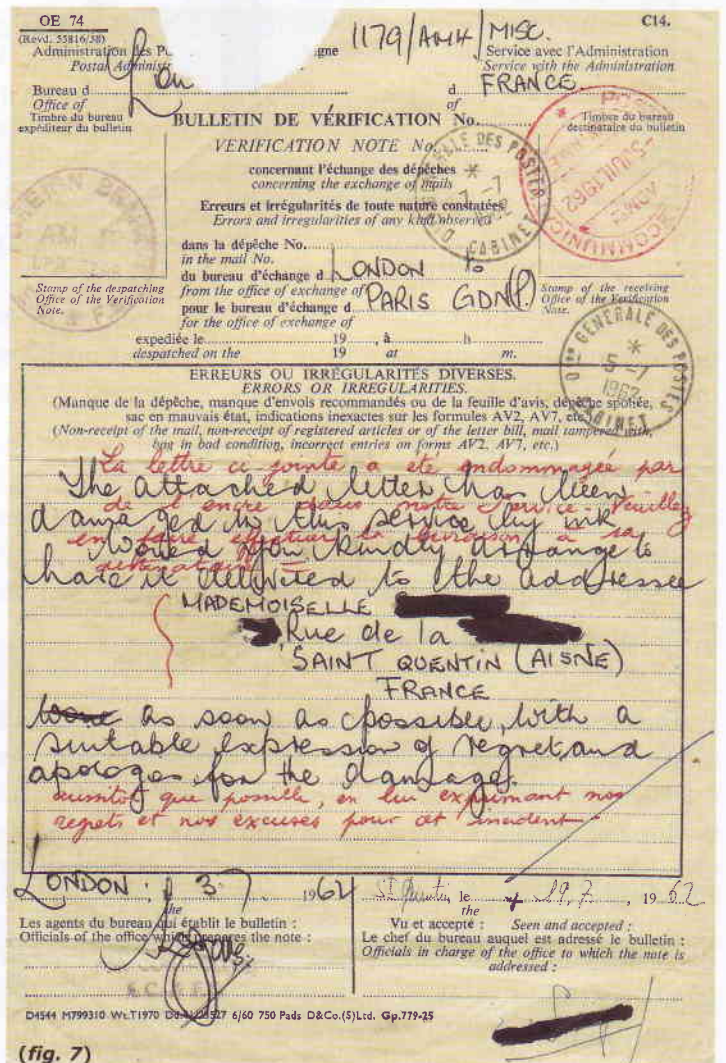 OE 74
(Revd. 55816/58)
C14.
1179/AM4/MISC.
Administration des Po gne
Postal Administ
Service avec l'Administration
Service with the Administration
Lon
Bureau d
Office of
d FRANCE
of
Timbre du bureau
expéditeur du bulletin
BULLETIN DE VÉRIFICATION No.
VERIFICATION NOTE No.
Timbre du bureau
destinataire du bulletin
concernant l'échange des dépêches
concerning the exchange of mails
Erreurs et irrégularités de toute nature constatées
Errors and irregularities of any kind observed
FOREIGN BRANCH
-5 JUIL 1962
CABINET
dans la dépêche No.
in the mail No.
du bureau d'échange d LONDON to
from the office of exchange of
pour le bureau d'échange d PARIS GDN(P).
for the office of exchange of
Stamp of the despatching
Office of the Verification
Note.
Stamp of the receiving
Office of the Verification
Note.
expediée le 19 , à h
despatched on the 19 at m.
DON GENERALE DES POSTES
* 5 -7 1962
CABINET
ERREURS OU IRRÉGULARITÉS DIVERSES.
ERRORS OR IRREGULARITIES.
(Manque de la dépêche, manque d'envois recommandés ou de la feuille d'avis, dépêche spoliée,
sac en mauvais état, indications inexactes sur les formules AV2, AV7, etc.)
(Non-receipt of the mail, non-receipt of registered articles or of the letter bill, mail tampered with,
bag in bad condition, incorrect entries on forms AV2, AV7, etc.)
La lettre ci-jointe a été endommagée par
The attached letter has been
de l'encre dans notre service. Veuillez
damaged in this service by ink
en faire effectuer la livraison à sa
Would you kindly arrange to
destinataire
have it delivered to the addressee
MADEMOISELLE
Rue de la
SAINT QUENTIN (AISNE)
FRANCE
as soon as possible, with a
suitable expression of regret and
apologes for the damage.
aussitôt que possible, en lui exprimant nos
regrets et nos excuses pour cet incident.
LONDON, 3 7 1962
the
St Quentin le 29.7 1962
the
Les agents du bureau qui établit le bulletin :
Officials of the office which prepares the note :
Vu et accepté : Seen and accepted :
Le chef du bureau auquel est adressé le bulletin :
Officials in charge of the office to which the note is
addressed :
D4544 M799310 Wt.T1970 6/60 750 Pads D&Co.(S)Ltd. Gp.779-25
(fig. 7)